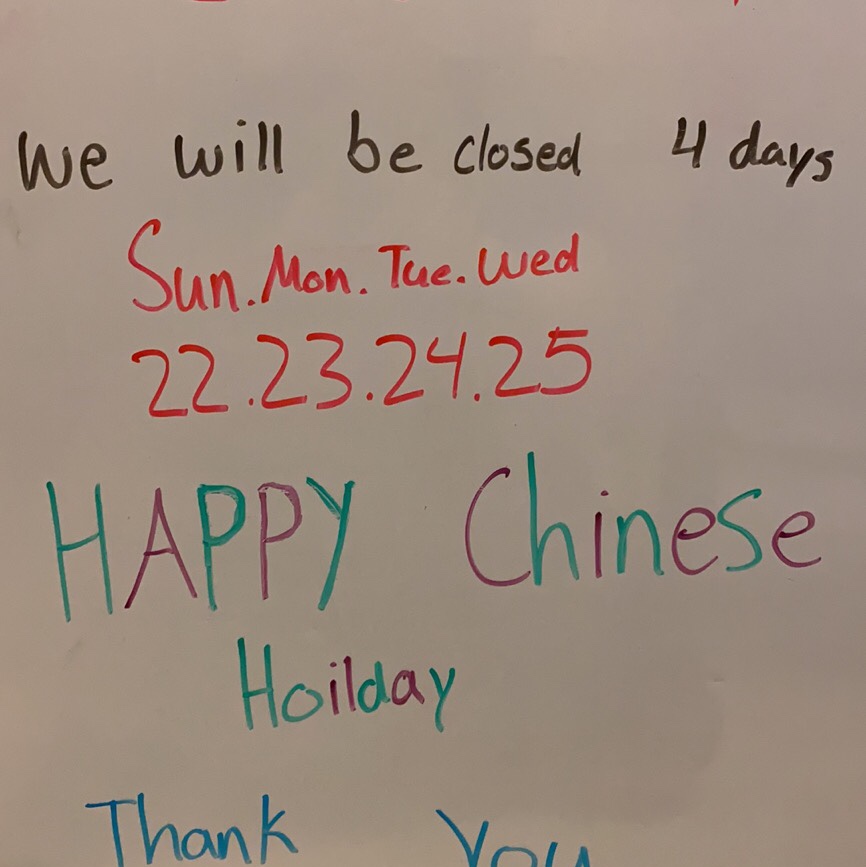 We will be closed 4 days
Sun.Mon.Tue.Wed
22.23.24.25
HAPPY Chinese
Hoilday
Thank You